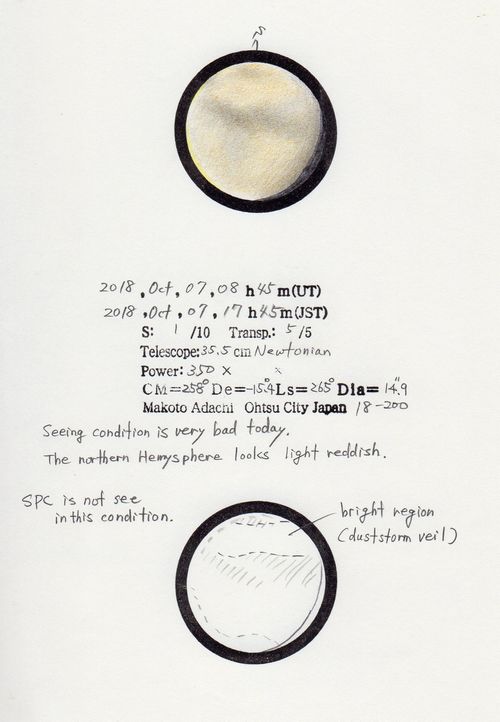 S
2018, Oct, 07, 08 h 45 m (UT)
2018, Oct, 07, 17 h 45 m (JST)
S: 1 /10 Transp.: 5 /5
Telescope: 35.5 cm Newtonian
Power: 350 ×
CM=258° De=-15.4 Ls=265° Dia= 14.9"
Makoto Adachi Ohtsu City Japan 18-200
Seeing condition is very bad today.
The northern Hemysphere looks light reddish.
SPC is not see
in this condition.
bright region
(duststorm veil)